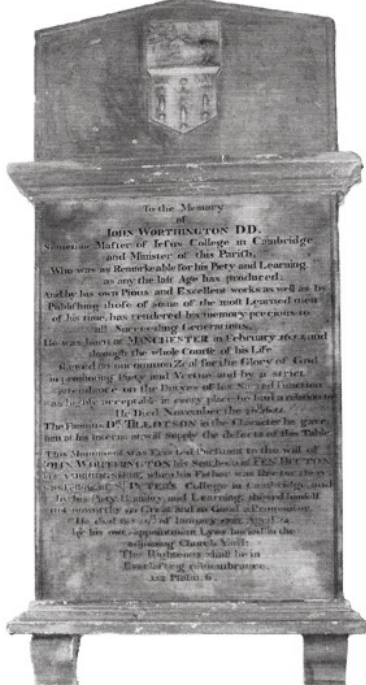 To the Memory
of
JOHN WORTHINGTON DD.
Sometime Master of Jesus College in Cambridge
and Minister of this Parish,
Who was as Remarkable for his Piety and Learning,
as any the last Age has produced;
And by his own Pious and Excellent works as well as by
Publishing those of some of the most Learned men
of his time, has rendered his memory precious to
all Succeeding Generations,
He was born at MANCHESTER in February and
through the whole Course of his Life
shewed an uncommon Zeal for the Glory of God
in promoting Piety and Vertue and by a strict
attendance on the Dutyes of his Sacred Function
as highly acceptable in every place he had a relation to
He Died November the
The Famous Dr. TILLOTSON in the Character he gave
him at his interment will supply the defects of this Table
This Monument was Erected Pursuant to the will of
JOHN WORTHINGTON his Son, of FEN DITTON
when his Father was Rector
St PETER'S College in Cambridge, and
by his Piety, and Learning, shewed himself
not unworthy so Great and so Good a Progenitor.
He died of January
by his own appointment Lyes buried in the
adjoining Church Yard:
The Righteous shall be in
Everlasting remembrance.
112 Psalm. 6.